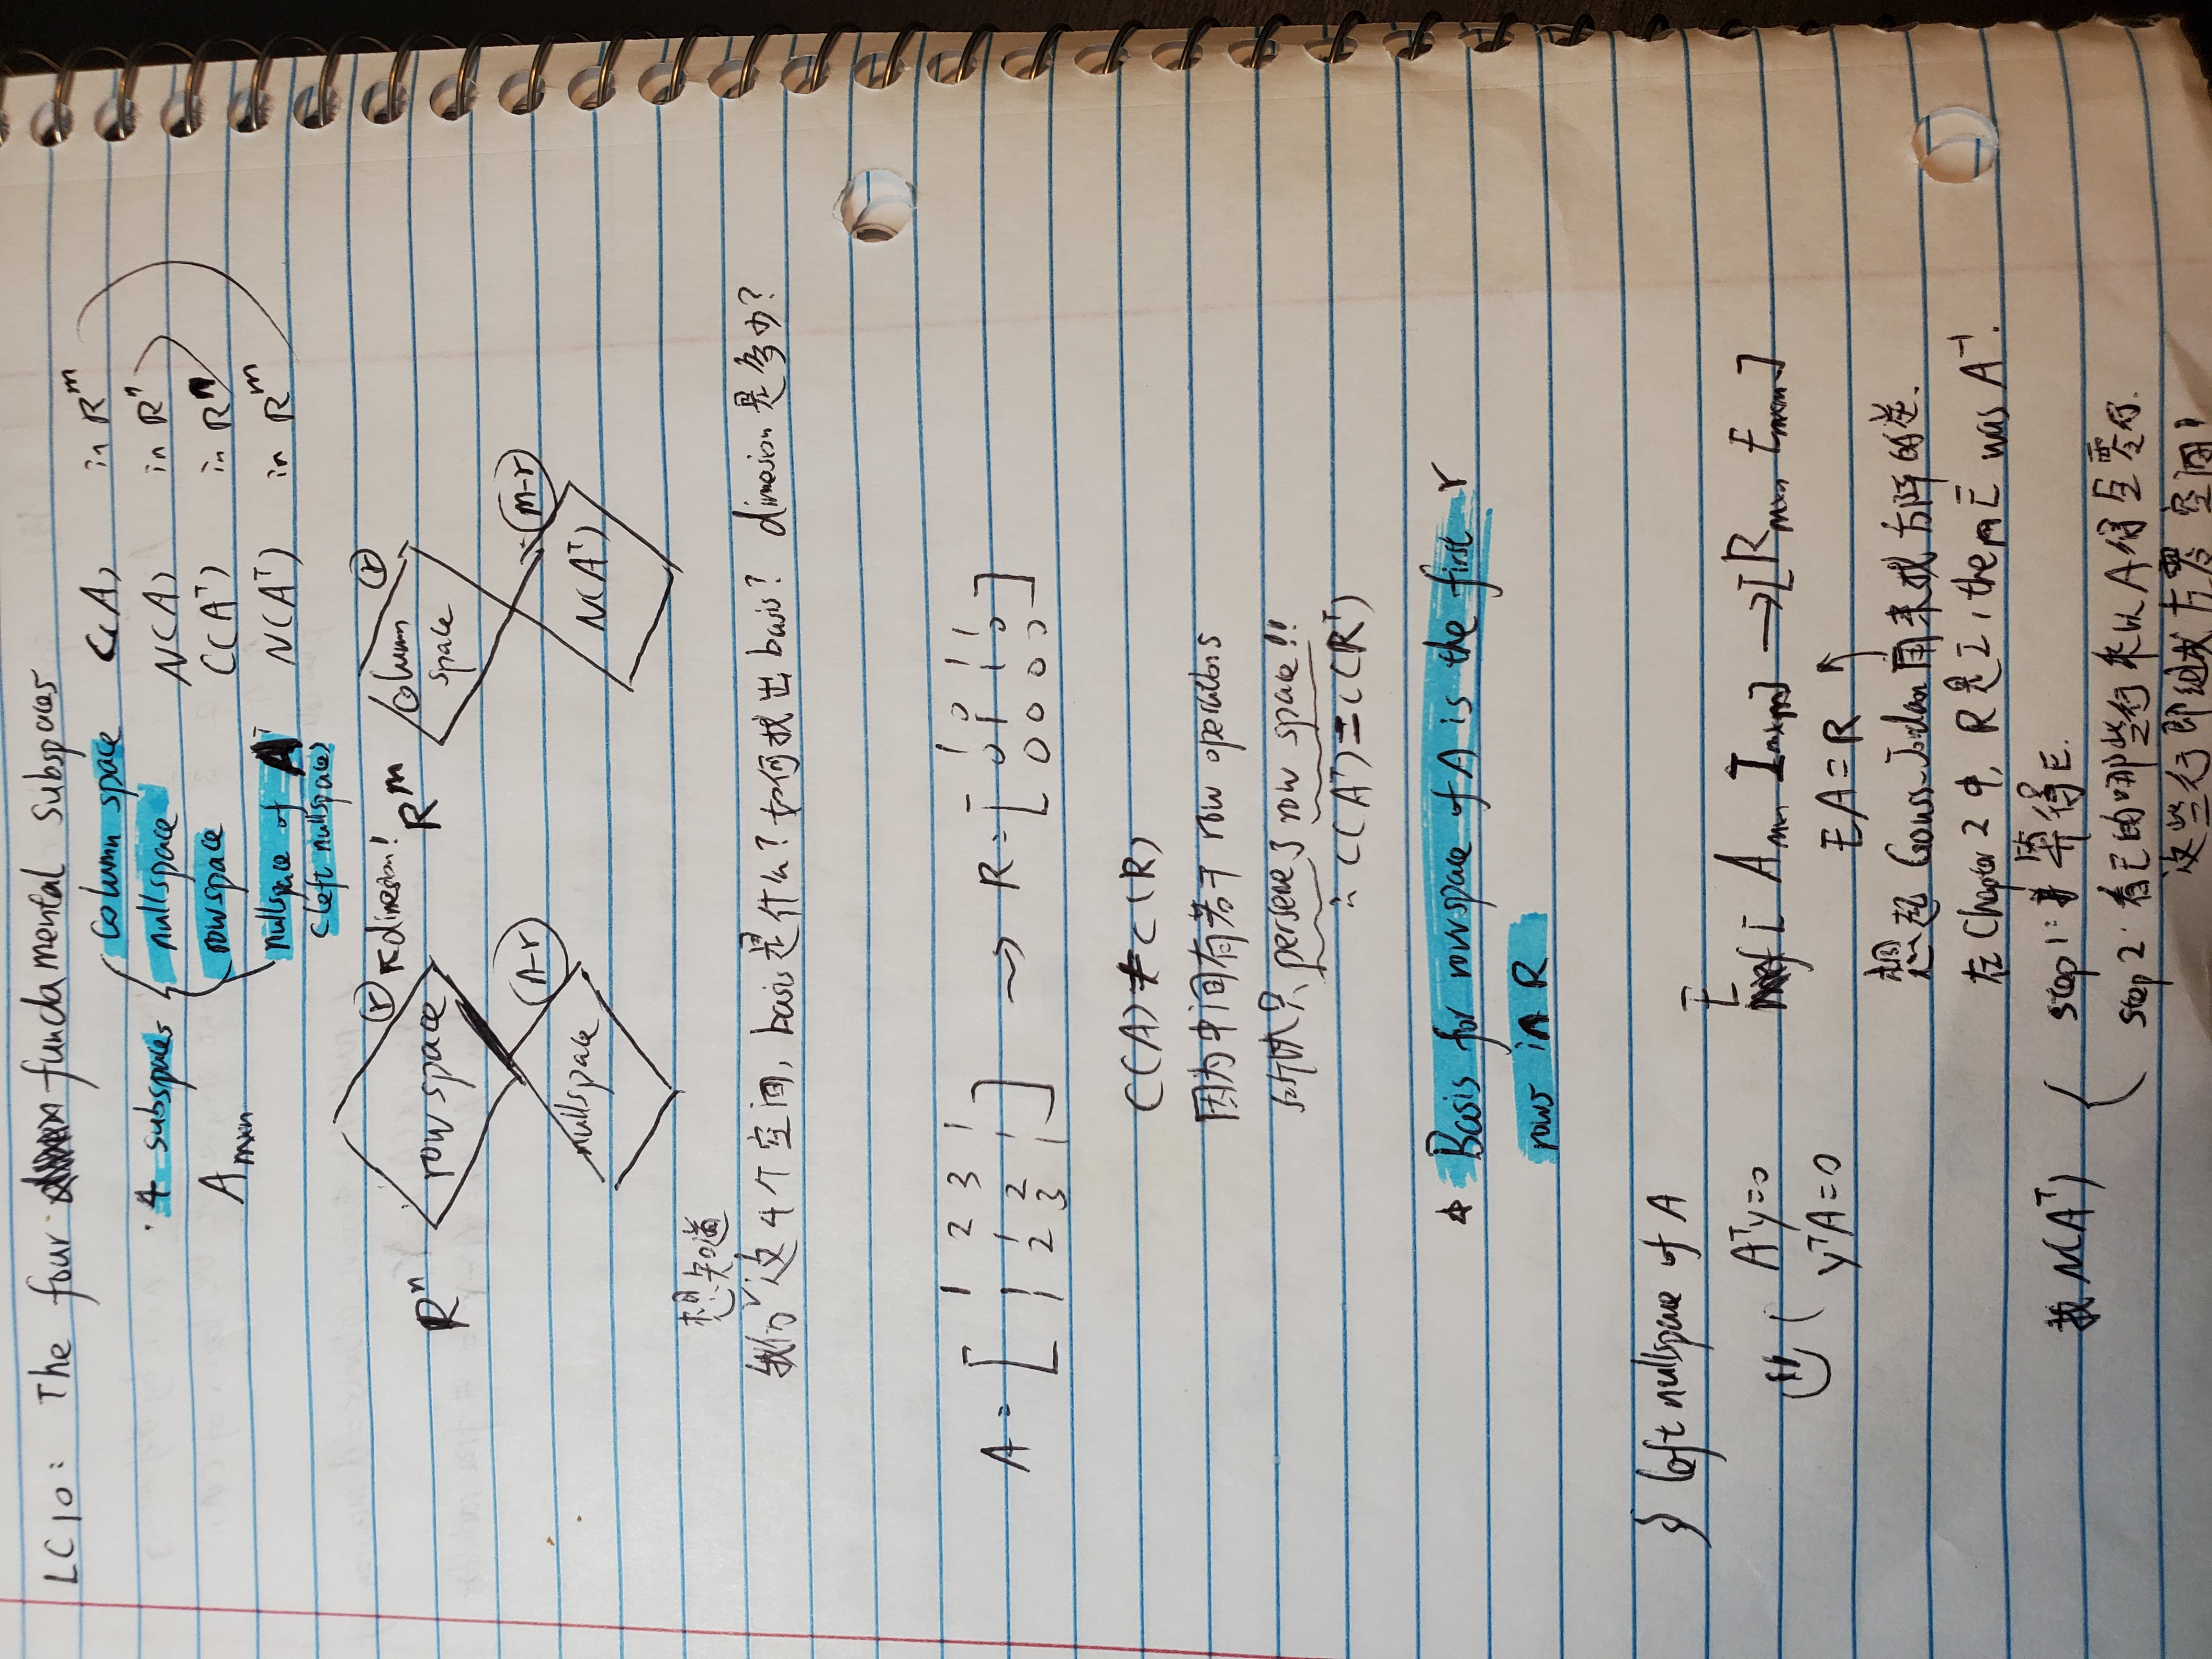 LC10: The four fundamental subspaces
column space C(A) in R^m
· 4 subspaces nullspace N(A) in R^n
A_m×n rowspace C(A^T) in R^n
nullspace of A^T N(A^T) in R^m
(left nullspace)
R^n row space r ↖dimesion! R^m column space r
nullspace n-r N(A^T) m-r
想知道
我们 ∨ 这4个空间, basis是什么? 如何找出basis? dimesion是多少?
A = [ 1 2 3 1 → R = [ 1 0 1 1
1 1 2 1 0 1 1 0
1 2 3 1 ] 0 0 0 0 ]
C(A) ≠ C(R)
因为中间有若干 row operations
只 perserve了 row space!!
∴ C(A^T) = C(R^T)
Basis for rowspace of A is the first r
rows in R
§ left nullspace of A
E
A^T y = 0 [ A_mn I_m×m ] → [ R_m×n E_m×m ]
y^T A = 0 EA = R ↑
想起 Gauss-Jordan 用来找方阵的逆.
在 Chapter 2 中, R是I, then E was A^-1.
找 N(A^T) step 1: 算得E.
step 2: 看E的哪些行乘以A得全零行.
这些行即组成左零空间!